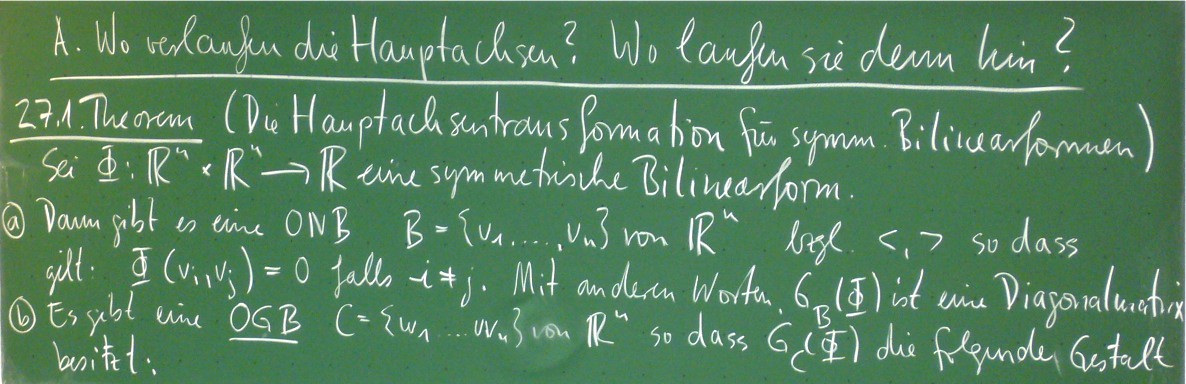 A. Wo verlaufen die Hauptachsen? Wo laufen sie denn hin?
27.1. Theorem (Die Hauptachsentransformation für symm. Bilinearformen)
Sei Φ: ℝⁿ × ℝⁿ → ℝ eine symmetrische Bilinearform.
ⓐ Dann gibt es eine ONB B = {v₁, ..., vₙ} von ℝⁿ bzgl. <,> so dass
gilt: Φ(vᵢ, vⱼ) = 0 falls i ≠ j. Mit anderen Worten, G_B(Φ) ist eine Diagonalmatrix
ⓑ Es gibt eine OGB C = {w₁ ... wₙ} von ℝⁿ so dass G_C(Φ) die folgende Gestalt
besitzt: